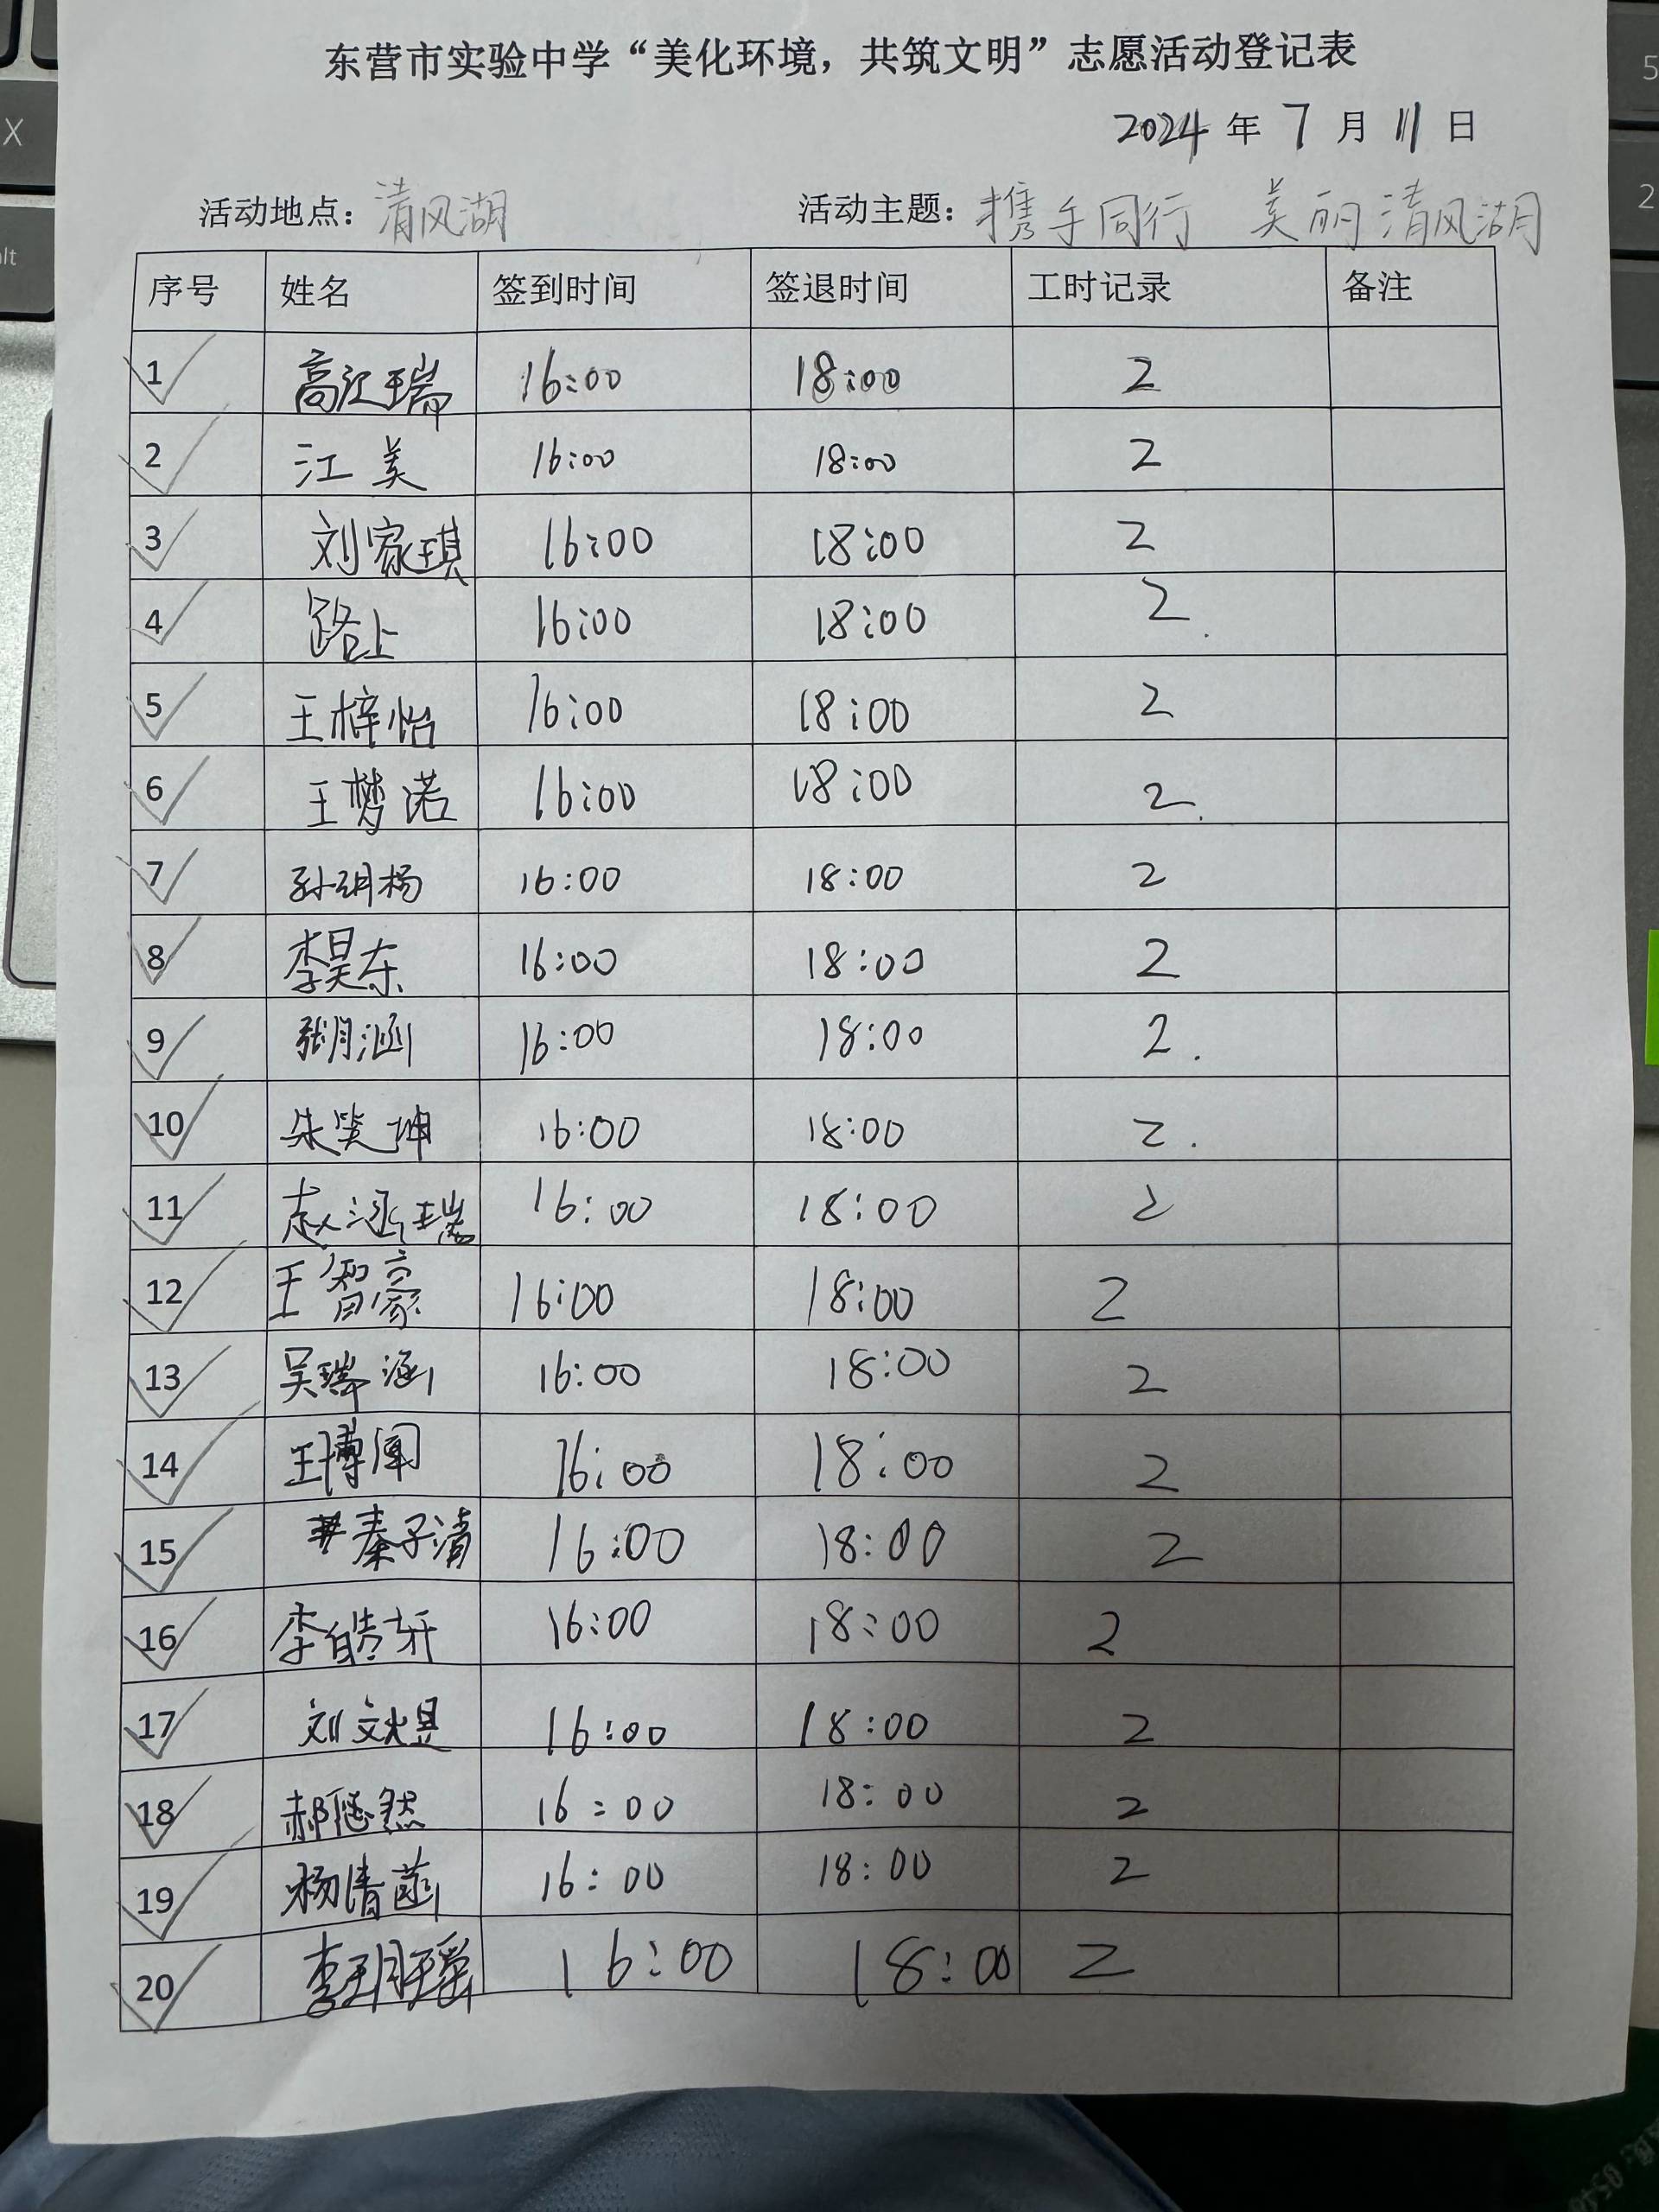 东营市实验中学“美化环境，共筑文明”志愿活动登记表
2024 年 7 月 11 日
活动地点：清风湖 活动主题：携手同行 美丽清风湖
序号 姓名 签到时间 签退时间 工时记录 备注
1 高江瑞 16:00 18:00 2
2 江美 16:00 18:00 2
3 刘家琪 16:00 18:00 2
4 路上 16:00 18:00 2
5 王梓怡 16:00 18:00 2
6 王梦诺 16:00 18:00 2
7 16:00 18:00 2
8 李昊东 16:00 18:00 2
9 张月涵 16:00 18:00 2
10 朱笑坤 16:00 18:00 2
11 赵涵瑞 16:00 18:00 2
12 王智豪 16:00 18:00 2
13 吴瑞涵 16:00 18:00 2
14 王博闻 16:00 18:00 2
15 秦子清 16:00 18:00 2
16 李皓轩 16:00 18:00 2
17 刘文焜 16:00 18:00 2
18 16:00 18:00 2
19 杨清菡 16:00 18:00 2
20 李玥瑶 16:00 18:00 2